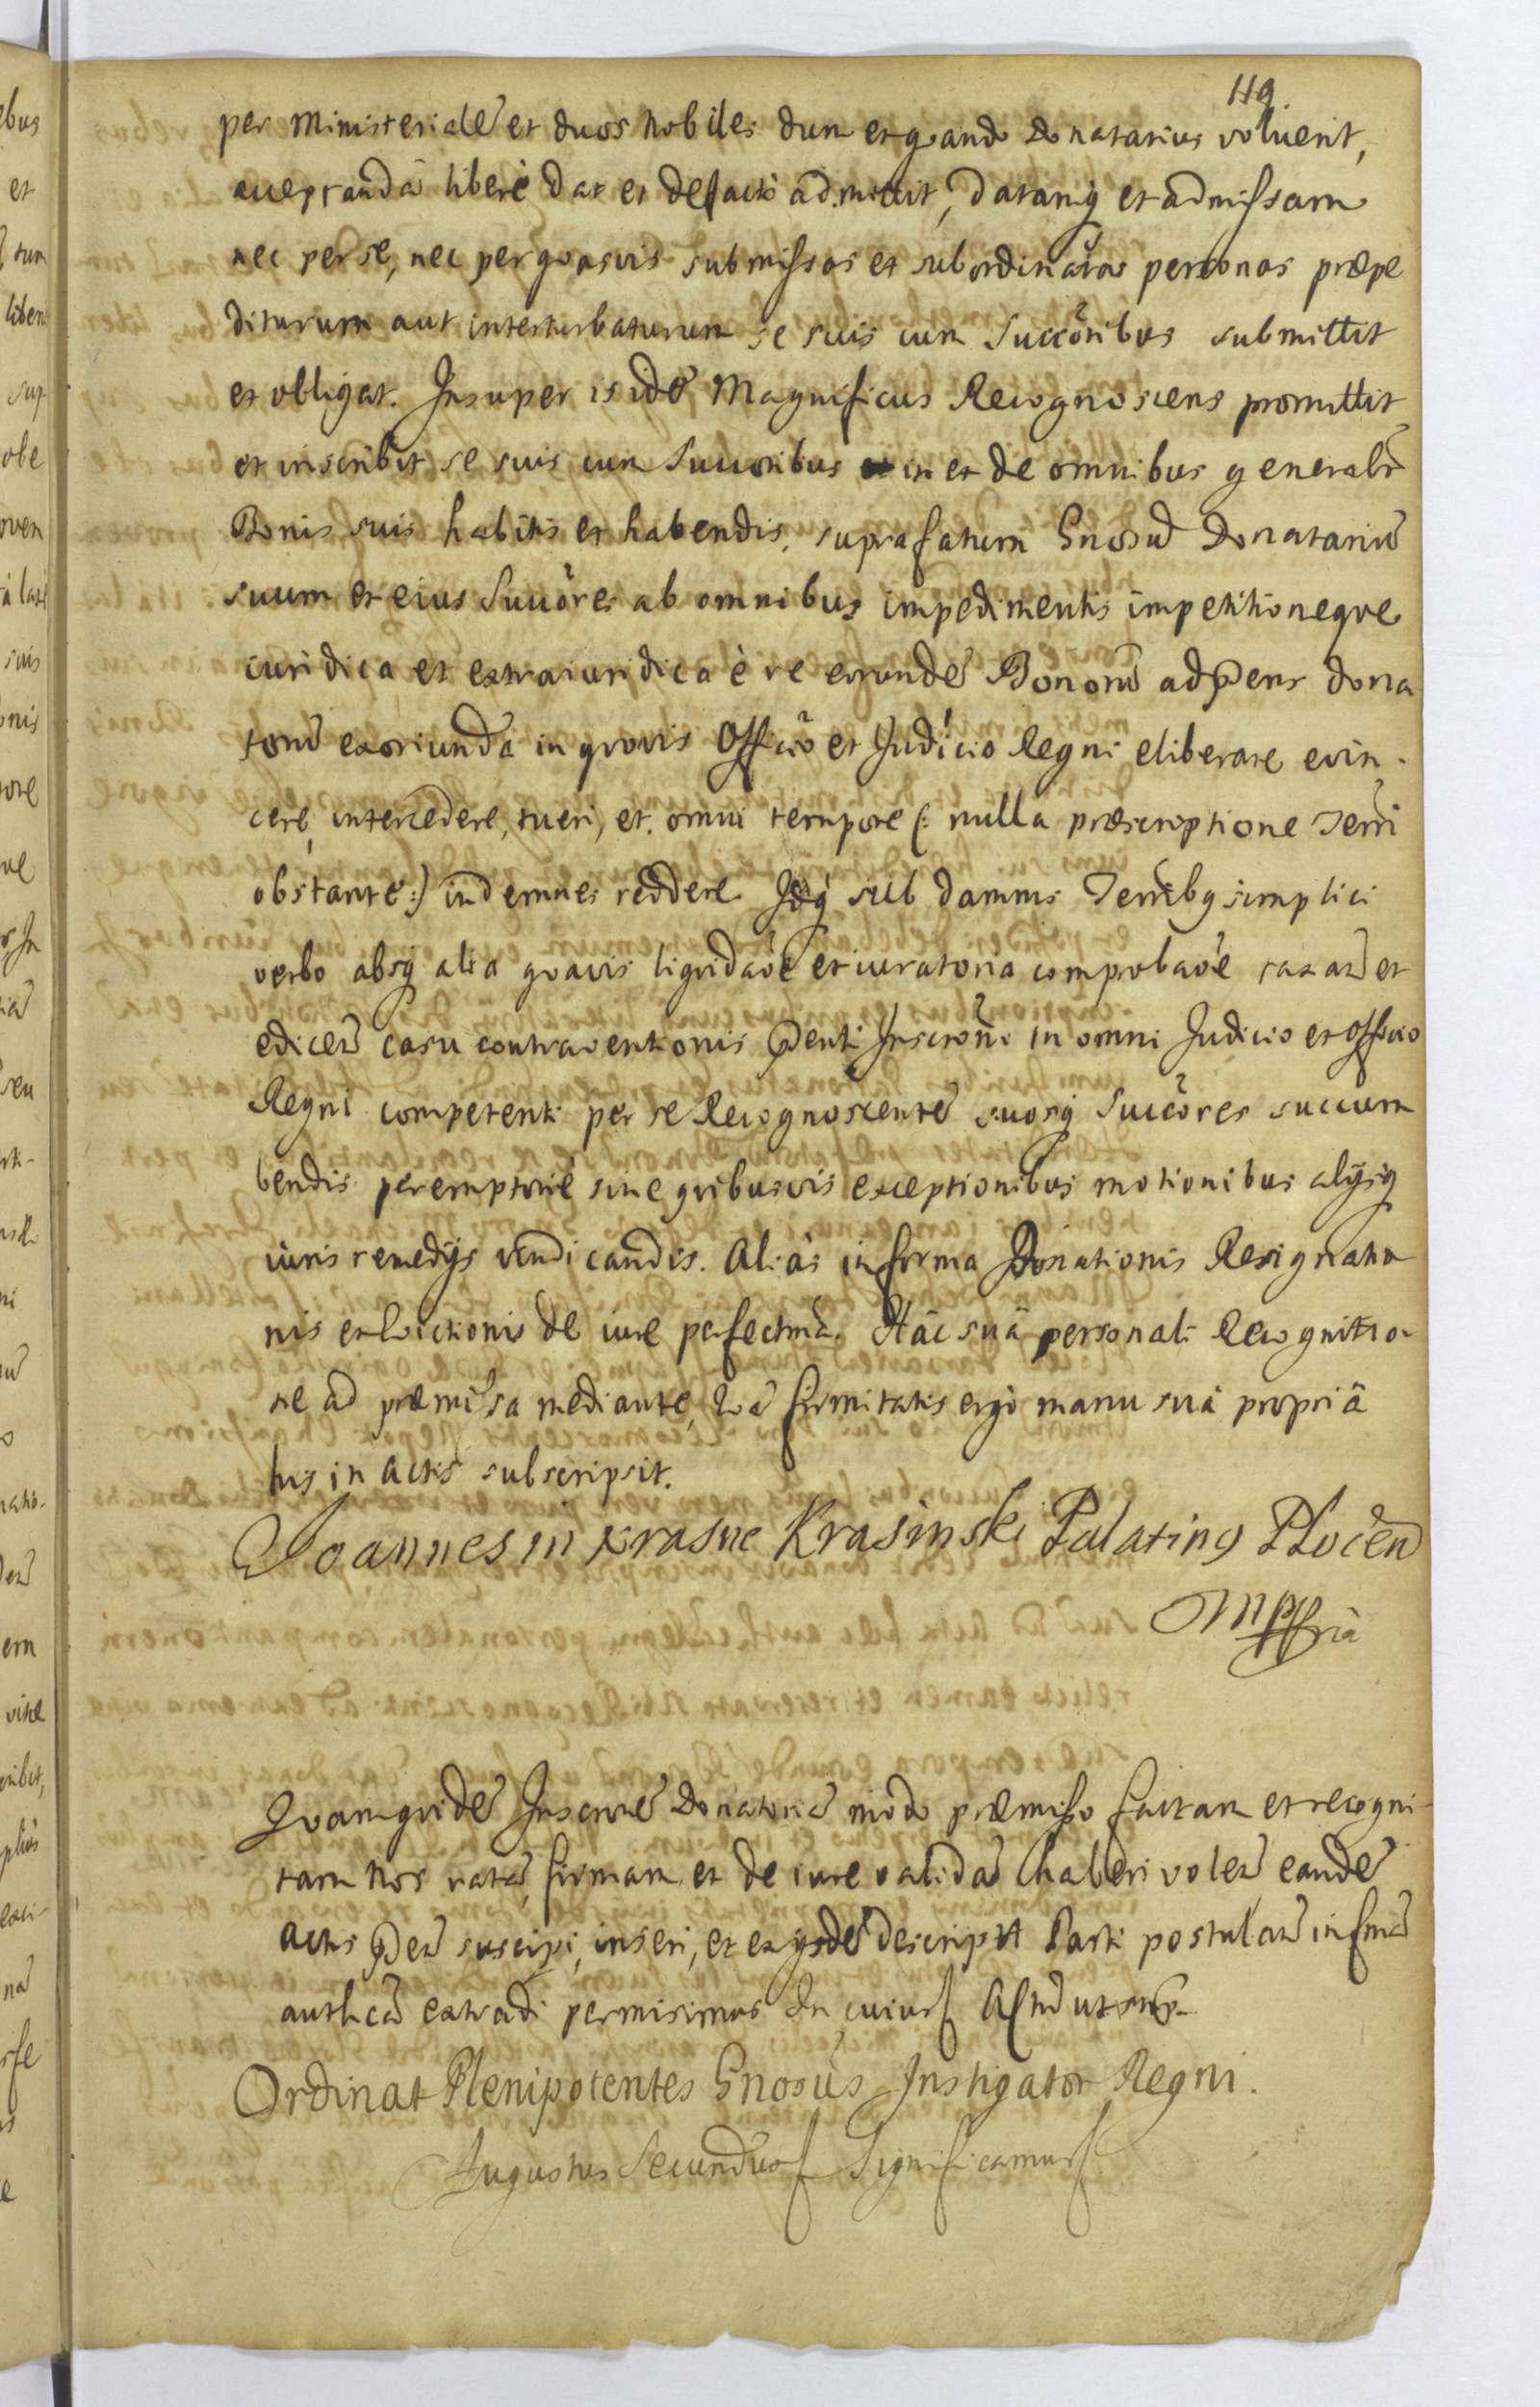 119.
per Ministerialē et duos Nobiles dum et quando Donatarius voluerit,
acceptandā liberè dat et defacto admittit, datamq et admissam
nec per se, nec per quasvis submissas et subordinatas personas præpe
diturum aut interturbaturum se suis cum Succōribus submittit
et obligat. Insuper is idē Magnificus Recognoscens promittit
et inscribit se suis cum Succoribus in et de omnibus generalr̄
Bonis suis habitis et habendis, suprafatum Gnosū Donatariū
suum et eius Succōres ab omnibus impedimentis impetitioneque
iuridica et extraiuridica è re eorundē Bonorū ad p̄ens dona
torū exoriundā in quovis Officio et Judicio Regni eliberare evin-
cere, intercedere, tueri, et omni tempore (: nulla præscriptione Terri
obstante :) indemnes reddere. Idq sub damnis Terribq simplici
verbo absq alia quavis liquidaōe et iuratoria comprobaōe taxan̄ et
edicen̄ casu contraventionis p̄enti Inscrōni in omni Judicio et Officio
Regni competenti per se Recognoscentē suosq Succōres succum
bendis peremptoriè sine quibusvis exceptionibus motionibus alijsq
iuris remedijs vendicandis. Aliàs in forma Donationis Resignatio
nis et Evictionis de iure perfectmā. Hâc suâ personali Recognitio-
ne ad præmissa mediante, firmitatis ergò manu suâ propriâ
his in Actis subscripsit.
Joannes in Krasne Krasinski Palatinq Plocen
mppria
Quamquidē Inscronē Donatoriā modo præmisso factam et recogni-
tam Nos ratā, firmam et de iure validā haberi volen̄ eandē
Actis p̄en̄ suscipi, inseri, et ex ijsdē descriptā Parti postulan̄ in formā
authcā extradi permisimus In cuius Actū ut sup.
Ordinat Plenipotentes Gnosus Instigator Regni.
Augustus Secundus Significamus